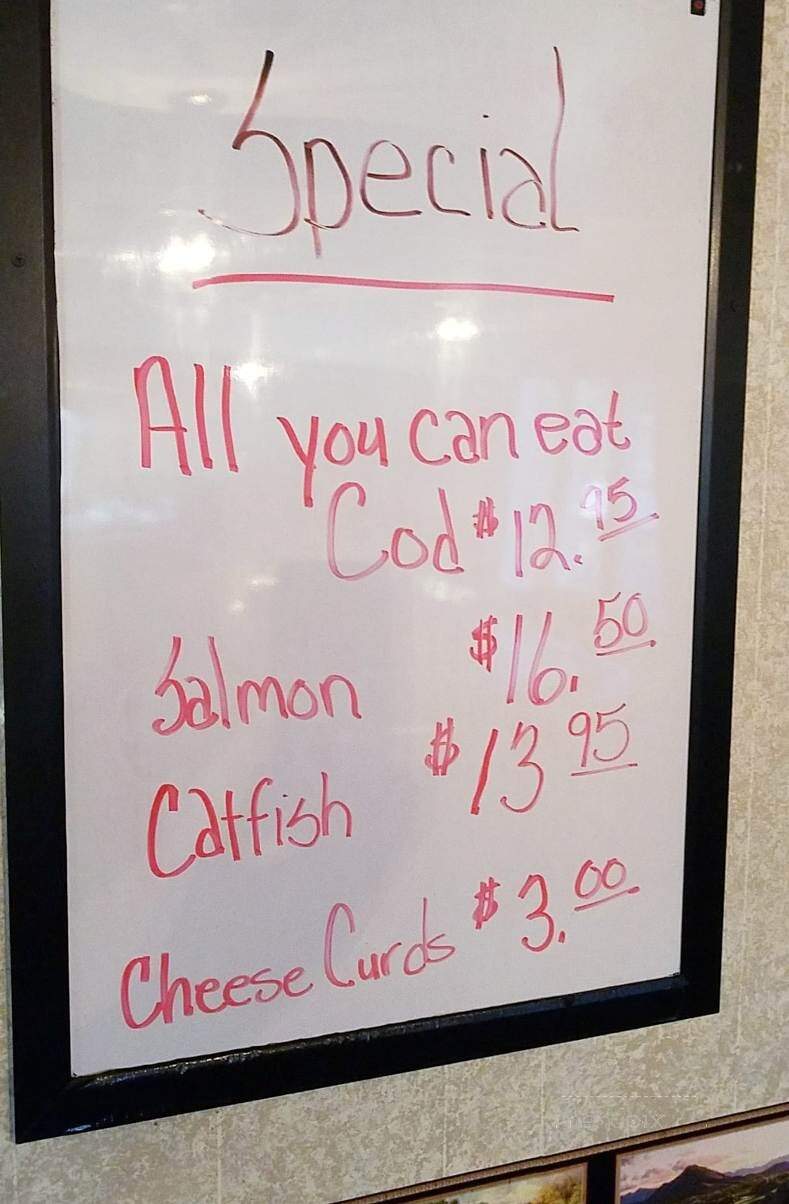 Special
All you can eat
Cod $12.95
Salmon $16.50
Catfish $13 95
Cheese Curds $3.00